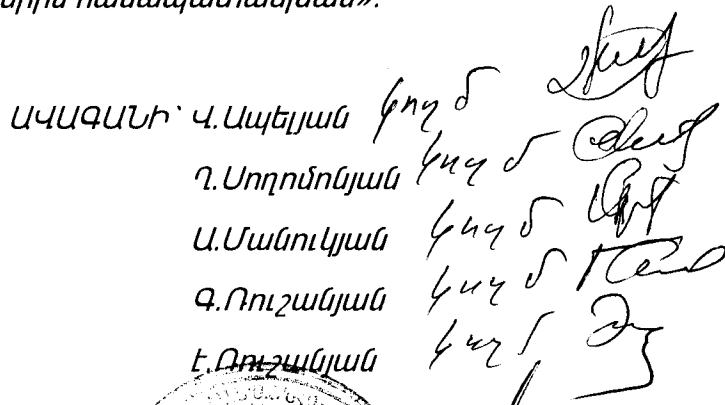 ԱՎԱԳԱՆԻ՝ Վ.Ապելյան կողմ
Ղ.Սողոմոնյան կողմ
Ա.Մանուկյան կողմ
Գ.Ռուշանյան կողմ
Է.Ռուշանյան կողմ